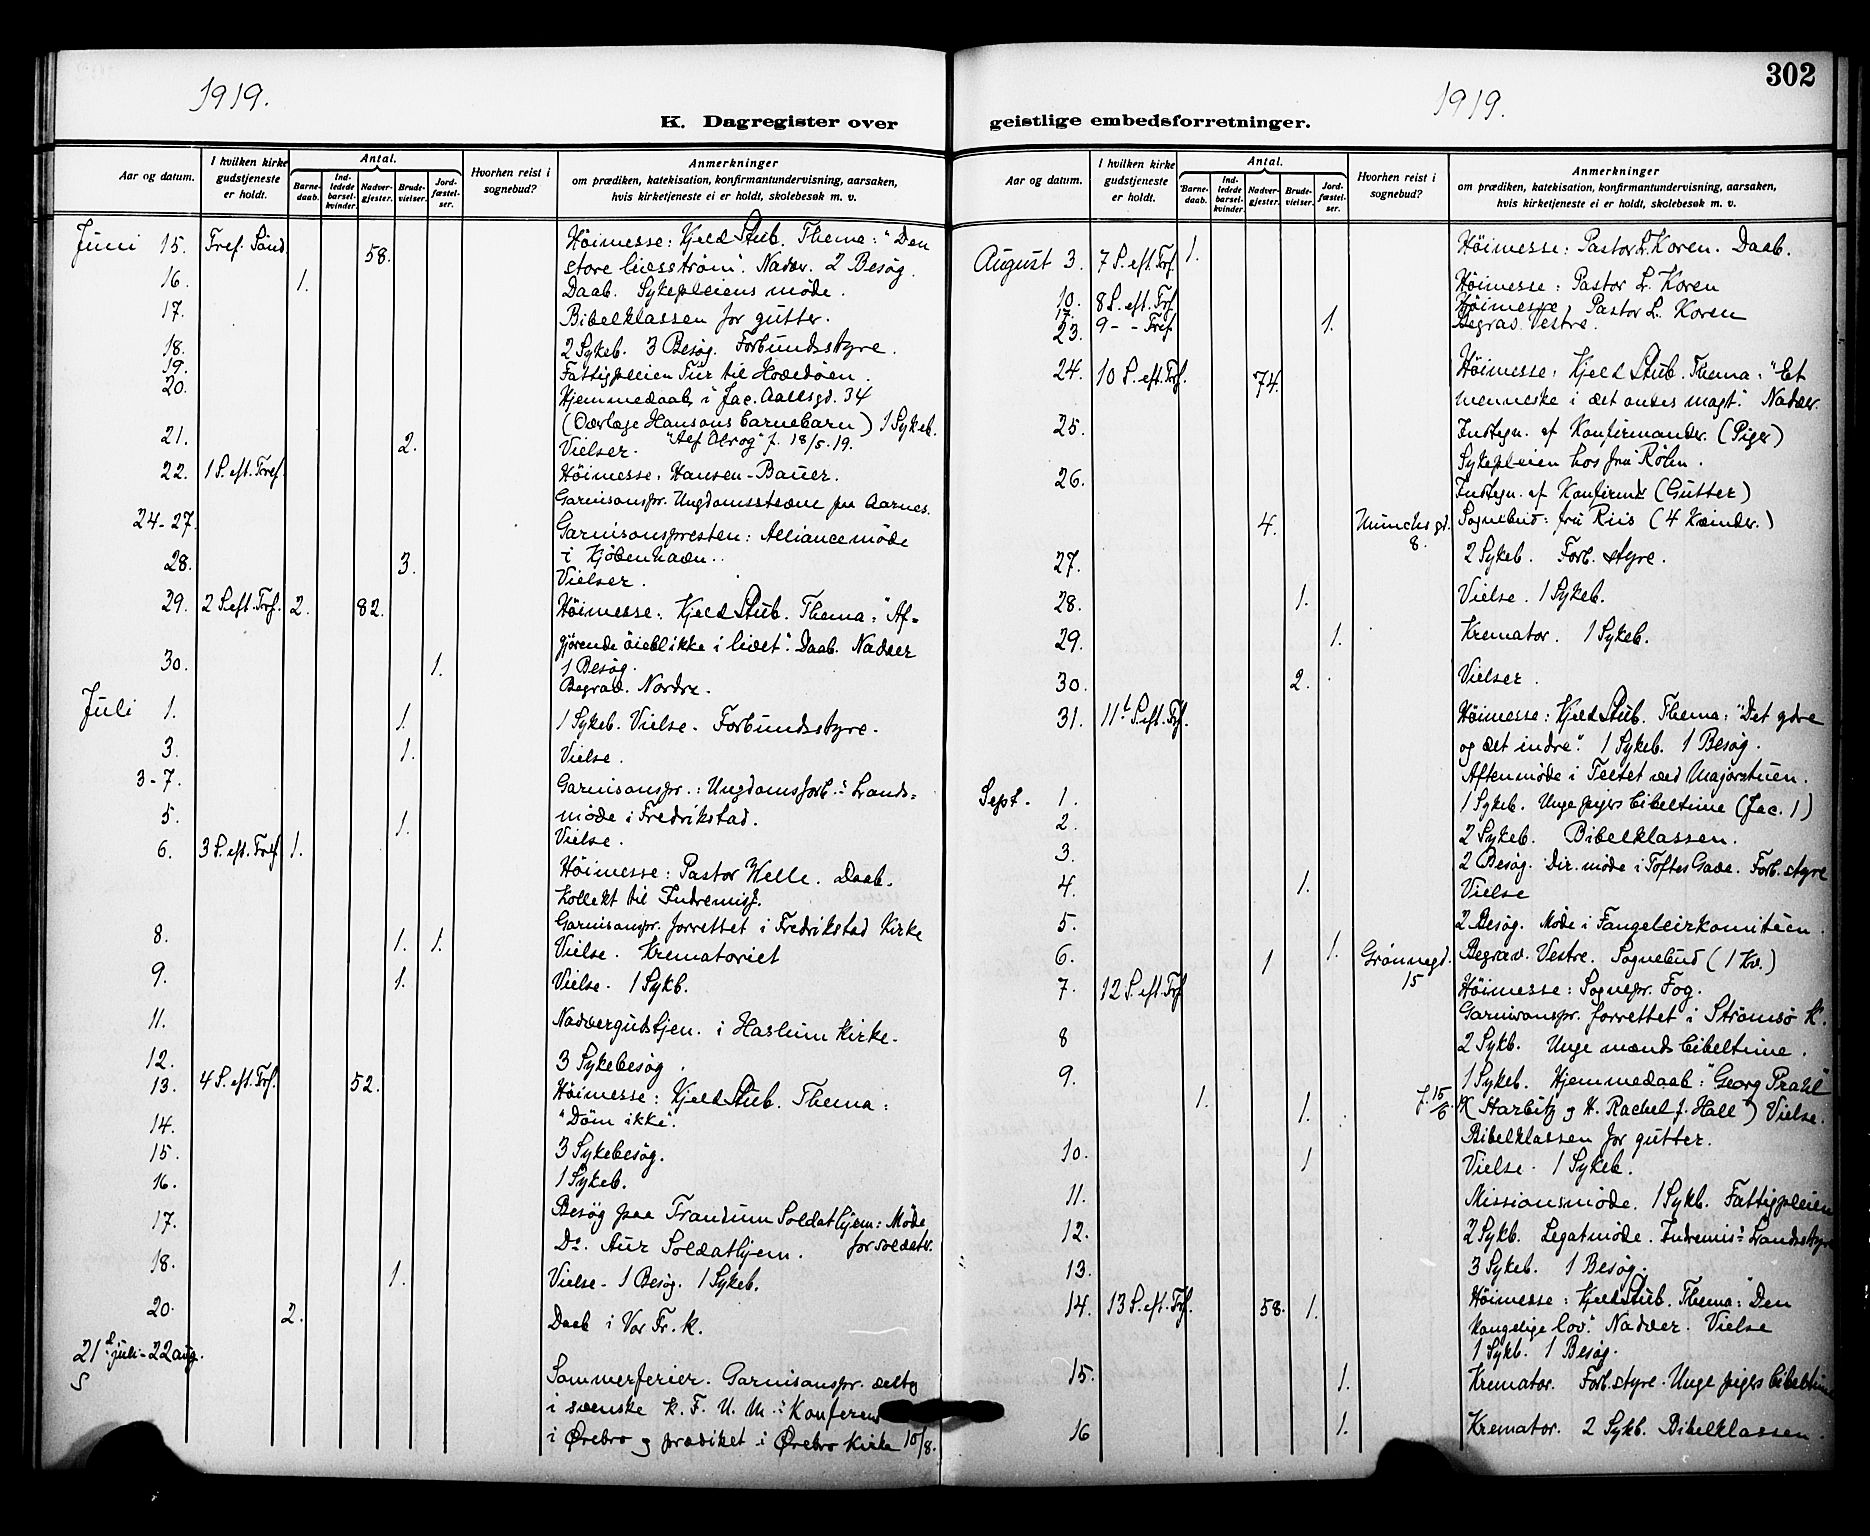 1919.
K. Dagregister over
Aar og datum.
I hvilken kirke gudstjeneste er holdt.
Antal.
Barne-daab.
Ind-ledede barsel-kvinder.
Nadver-gjester.
Brude-vielser.
Jord-fæstel-ser.
Hvorhen reist i sognebud?
Anmerkninger
om prædiken, katekisation, konfirmantundervisning, aarsaken,
hvis kirketjeneste ei er holdt, skolebesøk m. v.
Juni 15. Tref. Sønd. 58. Höimesse: Kjeld Stub. Thema: "Den
store livsström". Nadver. 2 Besög.
16. 1. Daab. Sykepleiens möde.
17. Bibelklassen for gutter.
18. 2 Sykeb. 3 Besög. Forbundsstyre.
19. Fattigpleien Tur til Hovedöen.
20. Hjemmedaab i Jac. Aallsgd. 34
(Overlæge Hansons barnebarn) 1 Sykeb.
"Alf Obrog" f. 18/5.19.
21. 2. Vielser.
22. 1 S. eft. Tref. Höimesse: Hansen-Bauer.
Garnisonspr. Ungdomsstevne paa Aarnes.
24-27. Garnisonspresten: Alliancemöde
i Kjöbenhavn.
28. 3. Vielser.
29. 2 S. eft. Trf. 2. 82. Höimesse: Kjeld Stub. Thema: "Af=
gjörende öieblikke i livet". Daab. Nadver
1 Besög.
30. 1. Begrav. Nordre.
Juli 1. 1. 1 Sykeb. Vielse. Forbundsstyre.
3. 1. Vielse.
3-7. Garnisonspr.: Ungdomsforb.s Lands=
möde i Fredrikstad.
5. 1. Vielse.
6. 3 S. eft. Tref 1. Höimesse: Pastor Welle. Daab.
Kollekt til Indremisj.
Garnisonspr. forrettet i Fredrikstad Kirke
8. 1. 1. Vielse. Krematoriet
9. 1. Vielse. 1 Sykb.
11. Nadvergudstjen. i Haslum Kirke.
12. 3 Sykebesög.
13. 4 S. eft. Trf. 52. Höimesse: Kjeld Stub. Thema:
"Döm ikke".
14.
15. 3 Sykebesög.
16. 1 Sykeb.
17. Besög paa Trandum Soldathjem: Möde
Do. Aur Soldathjem. for soldater.
18. 1. Vielse. 1 Besög. 1 Sykeb.
20. 2. Daab i Vor Fr. K.
21 juli-22 aug.
Sommerferier. Garnisonspr. deltog
i svenske K. F. U. M.s Konferens
i Ørebro og prædiket i Ørebro Kirke 10/8.
302
1919.
geistlige embedsforretninger.
Aar og datum.
I hvilken kirke gudstjeneste er holdt.
Antal.
Barne-daab.
Ind-ledede barsel-kvinder.
Nadver-gjester.
Brude-vielser.
Jord-fæstel-ser.
Hvorhen reist i sognebud?
Anmerkninger
om prædiken, katekisation, konfirmantundervisning, aarsaken,
hvis kirketjeneste ei er holdt, skolebesøk m. v.
August 3. 7 S. eft. Trf. 1. Höimesse: Pastor L. Koren. Daab.
10. 8 S. eft. Trf. Höimesse: Pastor L. Koren
17. 9 - - Tref. Höimesse, Pastor L. Koren
23. 1. Begrav. Vestre.
24. 10 S. eft. Trf. 74. Höimesse, Kjeld Stub. Thema: "Et
menneske i det ondes magt". Nadver.
25. Indtegn. af Konfirmander. (Piger)
Sykepleien hos fru Röhn.
26. Indtegn. af Konfirm. (Gutter)
4. Munchs gd. 8. Sognebud: fru Riis (4 Kvinder.)
27. 2 Sykeb. Forb. styre.
28. 1. Vielse. 1 Sykeb.
29. 1. Kremator. 1 Sykeb.
30. 2. Vielser.
31. 11t S. eft. Trf. Höimesse: Kjeld Stub. Thema: "Det ydre
og det indre". 1 Sykeb. 1 Besög.
Aftenmöde i Teltet ved Majorstuen.
Sept. 1. 1 Sykeb. Unge pigers bibeltime (Jac. 1)
2. 2 Sykeb. Bibelklassen.
3. 2 Besög. Dir. möde i Toftes Gade. Forb. styre
4. 1. Vielse
5. 2 Besög. Möde i Fangeleirkomiteen.
6. 1 1. Grönnegd. 15 Begrav. Vestre. Sognebud (1 Kv.)
7. 12 S. eft. Trf Höimesse: Sognepr. Fog.
Garnisonspr. forrettet i Strömsö K.
8 2 Sykb. Unge mænds bibeltime.
9. 1 Sykeb. Hjemmedaab: "Georg Prahl"
1. 1. f. 15/6. (K Starbitz og H. Rachel f. Hall) Vielse.
Bibelklassen for gutter.
10. 1 Vielse. 1 Sykeb.
11. Missionsmöde. 1 Sykb. Fattigpleien
12. 2 Sykb. Legatmöde. Indremis.s Landsstyre
13. 3 Sykeb. 1 Besög.
14. 13 S. eft. Trf. 58. 1. Höimesse: Kjeld Stub. Thema: "Den
kongelige lov". Nadver. Vielse
1 Sykb. 1 Besög.
15. 1. Kremator. Forb. styre. Unge pigers bibeltime
16 1. Kremator. 2 Sykb. Bibelklassen.